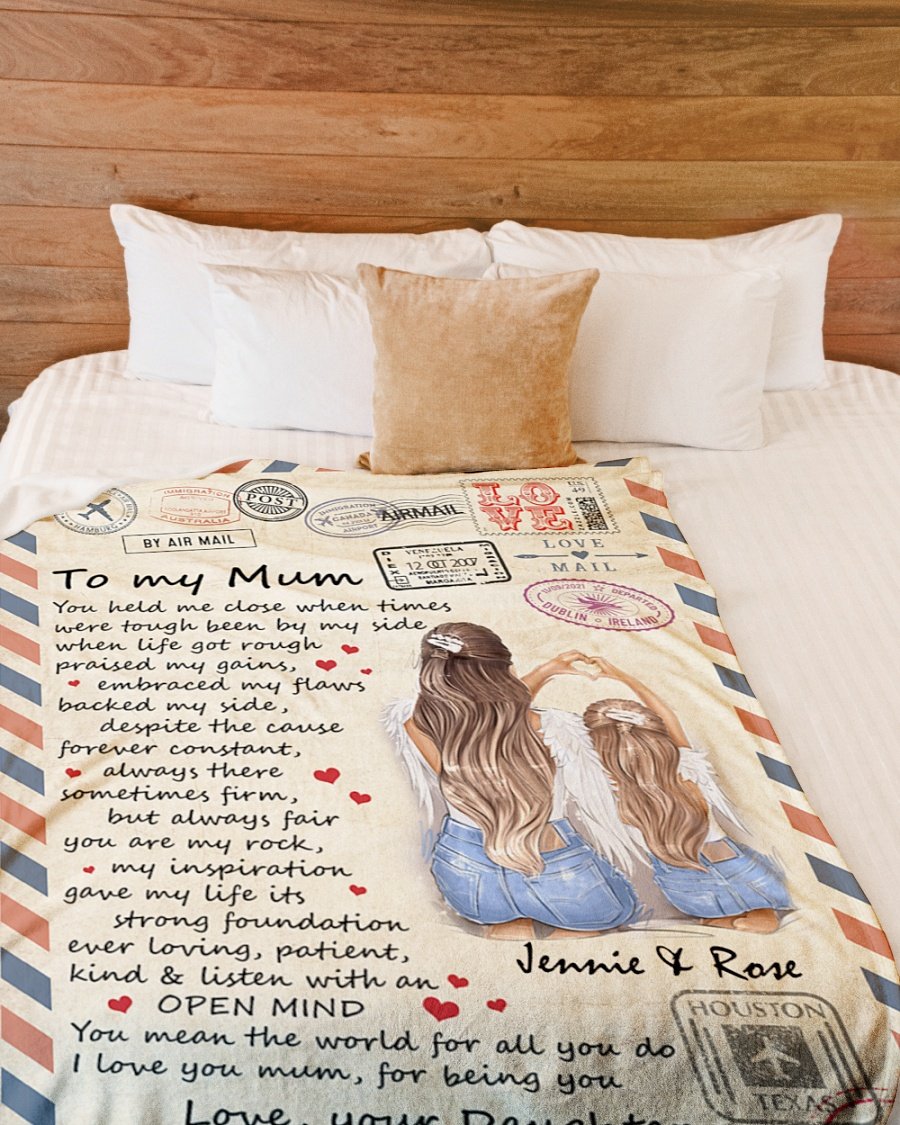 HAMBURG
IMMIGRATION
AUSTRALIA
POST
IMMIGRATION
CANADA
AIRPORT
AIRMAIL
LO
VE
US
49
BY AIR MAIL
VENEZUELA
12 OCT 2007
LOVE
MAIL
11/09/2021 DEPARTED
DUBLIN IRELAND
To my Mum
You held me close when times
were tough been by my side
when life got rough
praised my gains,
embraced my flaws
backed my side,
despite the cause
forever constant,
always there
sometimes firm,
but always fair
you are my rock,
my inspiration
gave my life its
strong foundation
ever loving, patient,
kind & listen with an
OPEN MIND
You mean the world for all you do
I love you mum, for being you
Love, your Daughter
Jennie & Rose
HOUSTON
TEXAS